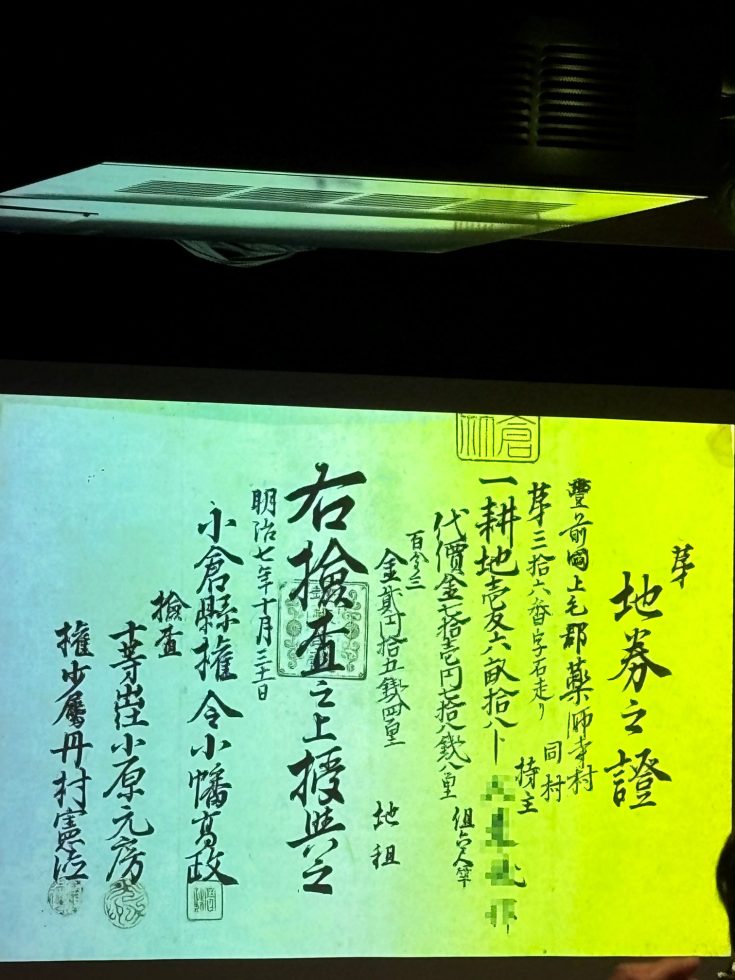 第
地券之證
豊前國上毛郡藥師寺村
第三拾六番字石走り
同村
持主
一耕地壱反六畝拾八卜
代價金七拾壱円七拾八銭八厘
百分ノ三
金貳円拾五錢四厘
地租
右撿査之上授與之
明治七年十月三十一日
小倉縣權令小幡高政
撿査
十等出仕小原元房
權少属丹村憲治